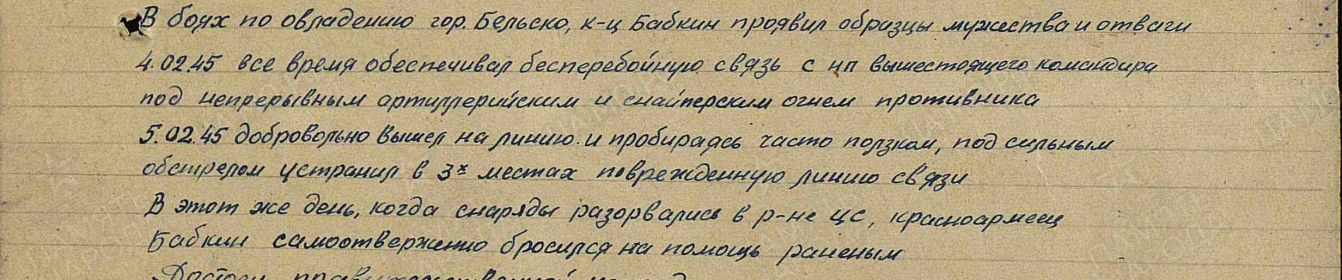 В боях по овладению гор. Бельско, к-ц Бабкин проявил образцы мужества и отваги
4.02.45 все время обеспечивал бесперебойную связь с нп вышестоящего командира
под непрерывным артиллерийским и снайперским огнем противника
5.02.45 добровольно вышел на линию и пробираясь часто ползком, под сильным
обстрелом устранил в 3х местах поврежденную линию связи
В этот же день, когда снаряды разорвались в р-не ЦС, красноармеец
Бабкин самоотверженно бросился на помощь раненым
Достоин правительственной